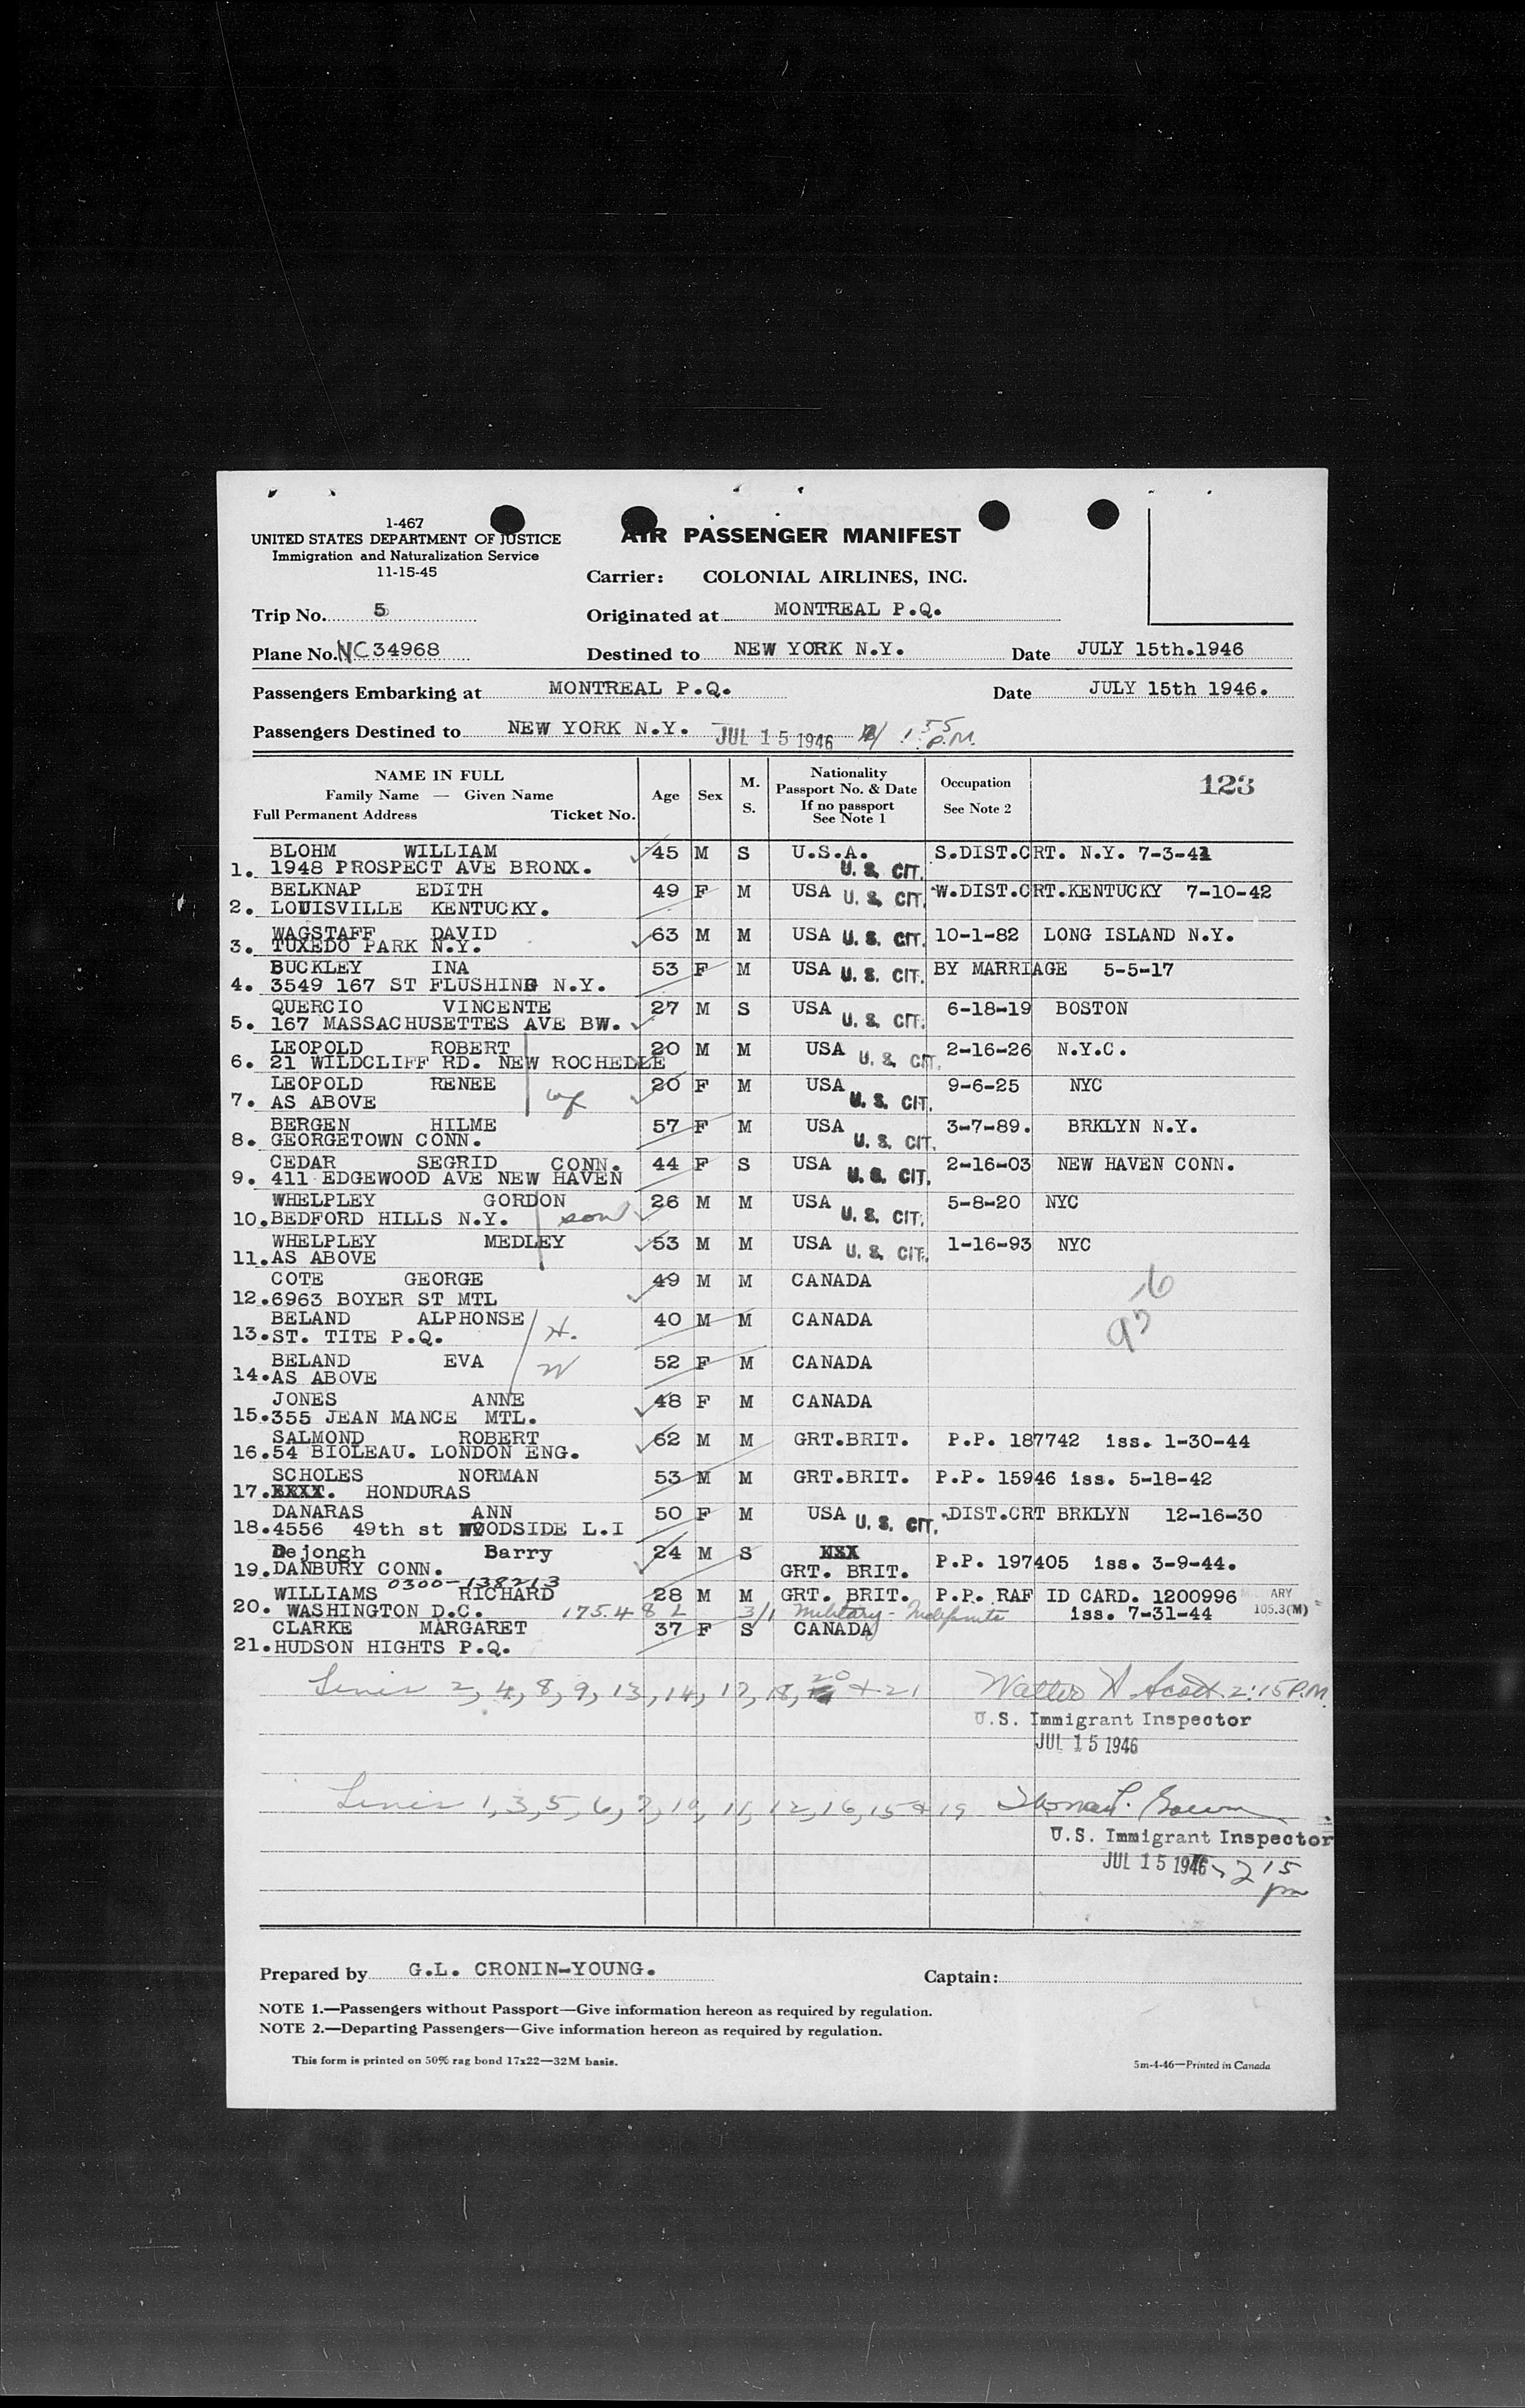 1-467
UNITED STATES DEPARTMENT OF JUSTICE
Immigration and Naturalization Service
11-15-45
AIR PASSENGER MANIFEST
Carrier: COLONIAL AIRLINES, INC.
Trip No. 5 Originated at MONTREAL P.Q.
Plane No. NC34968 Destined to NEW YORK N.Y. Date JULY 15th.1946
Passengers Embarking at MONTREAL P.Q. Date JULY 15th 1946.
Passengers Destined to NEW YORK N.Y. JUL 15 1946 1:55 P.M.
NAME IN FULL
Family Name — Given Name
Full Permanent Address Ticket No. Age Sex M. S. Nationality Passport No. & Date If no passport See Note 1 Occupation See Note 2 123
BLOHM WILLIAM 45 M S U.S.A. S.DIST.CRT. N.Y. 7-3-41
1. 1948 PROSPECT AVE BRONX. U. S. CIT.
BELKNAP EDITH 49 F M USA U. S. CIT. W.DIST.CRT.KENTUCKY 7-10-42
2. LOUISVILLE KENTUCKY.
WAGSTAFF DAVID 63 M M USA U. S. CIT. 10-1-82 LONG ISLAND N.Y.
3. TUXEDO PARK N.Y.
BUCKLEY INA 53 F M USA U. S. CIT. BY MARRIAGE 5-5-17
4. 3549 167 ST FLUSHING N.Y.
QUERCIO VINCENTE 27 M S USA U. S. CIT. 6-18-19 BOSTON
5. 167 MASSACHUSETTES AVE BW.
LEOPOLD ROBERT 20 M M USA U. S. CIT. 2-16-26 N.Y.C.
6. 21 WILDCLIFF RD. NEW ROCHELLE
LEOPOLD RENEE 20 F M USA 9-6-25 NYC
7. AS ABOVE wf U. S. CIT.
BERGEN HILME 57 F M USA 3-7-89. BRKLYN N.Y.
8. GEORGETOWN CONN. U. S. CIT.
CEDAR SEGRID CONN. 44 F S USA 2-16-03 NEW HAVEN CONN.
9. 411 EDGEWOOD AVE NEW HAVEN U. S. CIT.
WHELPLEY GORDON 26 M M USA 5-8-20 NYC
10. BEDFORD HILLS N.Y. son U. S. CIT.
WHELPLEY MEDLEY 53 M M USA U. S. CIT. 1-16-93 NYC
11. AS ABOVE
COTE GEORGE 49 M M CANADA
12. 6963 BOYER ST MTL
BELAND ALPHONSE 40 M M CANADA
13. ST. TITE P.Q. H.
BELAND EVA 52 F M CANADA
14. AS ABOVE W
JONES ANNE 48 F M CANADA
15. 355 JEAN MANCE MTL.
SALMOND ROBERT 62 M M GRT.BRIT. P.P. 187742 iss. 1-30-44
16. 54 BIOLEAU. LONDON ENG.
SCHOLES NORMAN 53 M M GRT.BRIT. P.P. 15946 iss. 5-18-42
17. HONDURAS
DANARAS ANN 50 F M USA U. S. CIT. DIST.CRT BRKLYN 12-16-30
18. 4556 49th st WOODSIDE L.I
Dejongh Barry 24 M S
19. DANBURY CONN. GRT. BRIT. P.P. 197405 iss. 3-9-44.
0300-138213
WILLIAMS RICHARD 28 M M GRT. BRIT. P.P. RAF ID CARD. 1200996
20. WASHINGTON D.C. 17548 L 3/1 Military - Indefinite iss. 7-31-44 105.3(M)
CLARKE MARGARET 37 F S CANADA
21. HUDSON HIGHTS P.Q.
Lines 2, 4, 8, 9, 13, 14, 17, 18, 20 & 21 Walter N Scott 2:15 P.M.
U.S. Immigrant Inspector
JUL 15 1946
Lines 1, 3, 5, 6, 7, 10, 11, 12, 16, 15 & 19
U.S. Immigrant Inspector
JUL 15 1946 2 15 pm
Prepared by G.L. CRONIN-YOUNG. Captain:
NOTE 1.—Passengers without Passport—Give information hereon as required by regulation.
NOTE 2.—Departing Passengers—Give information hereon as required by regulation.
This form is printed on 50% rag bond 17x22—32M basis. 5m-4-46—Printed in Canada